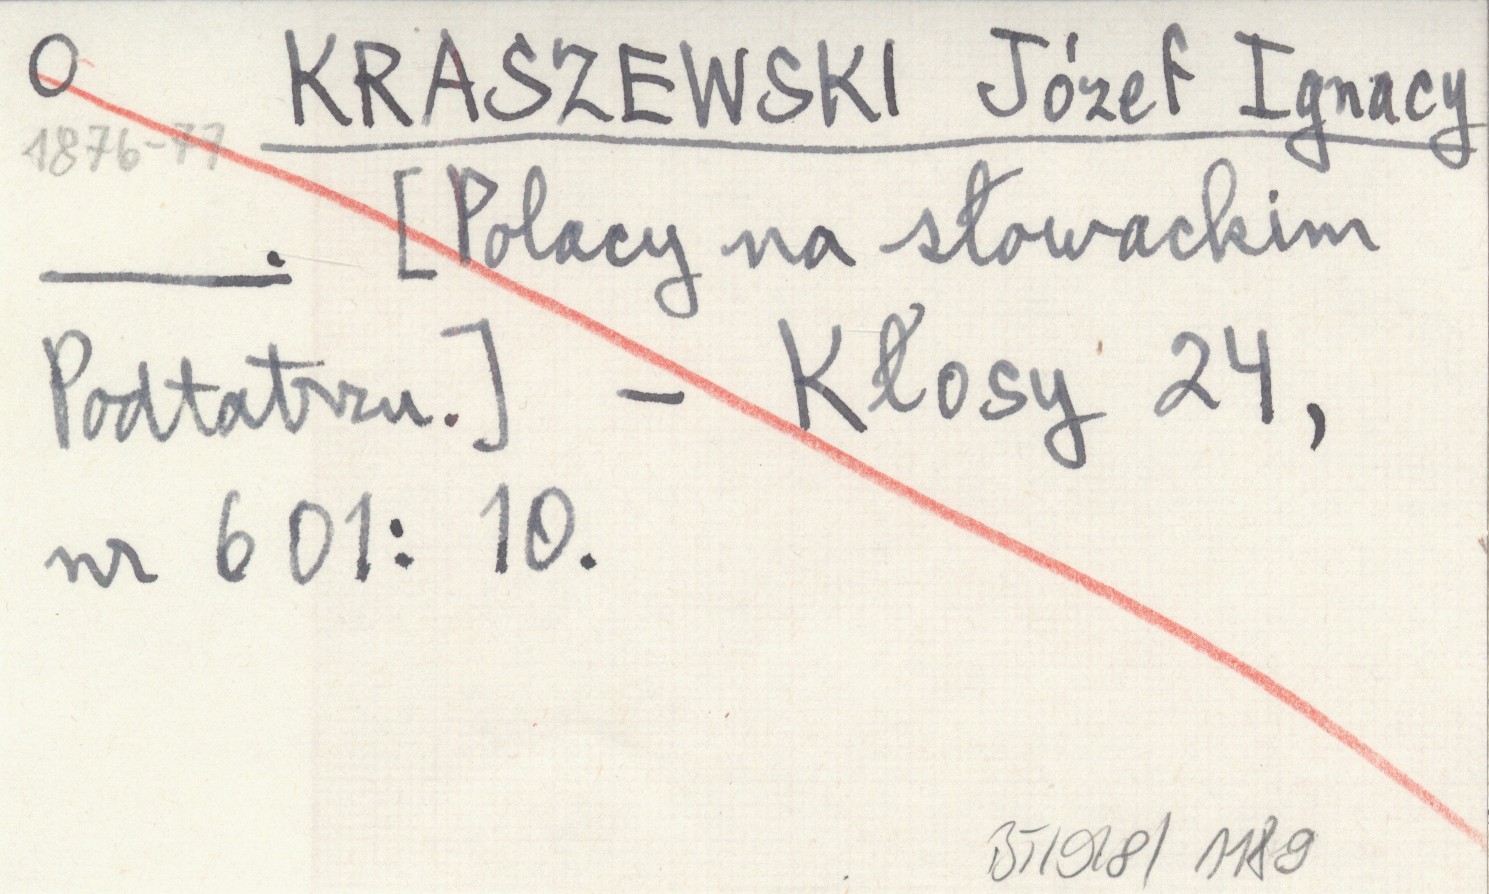 O KRASZEWSKI Józef Ignacy
1876-77
. [Polacy na słowackim
Podtatrzu.] - Kłosy 24,
nr 601: 10.
1189